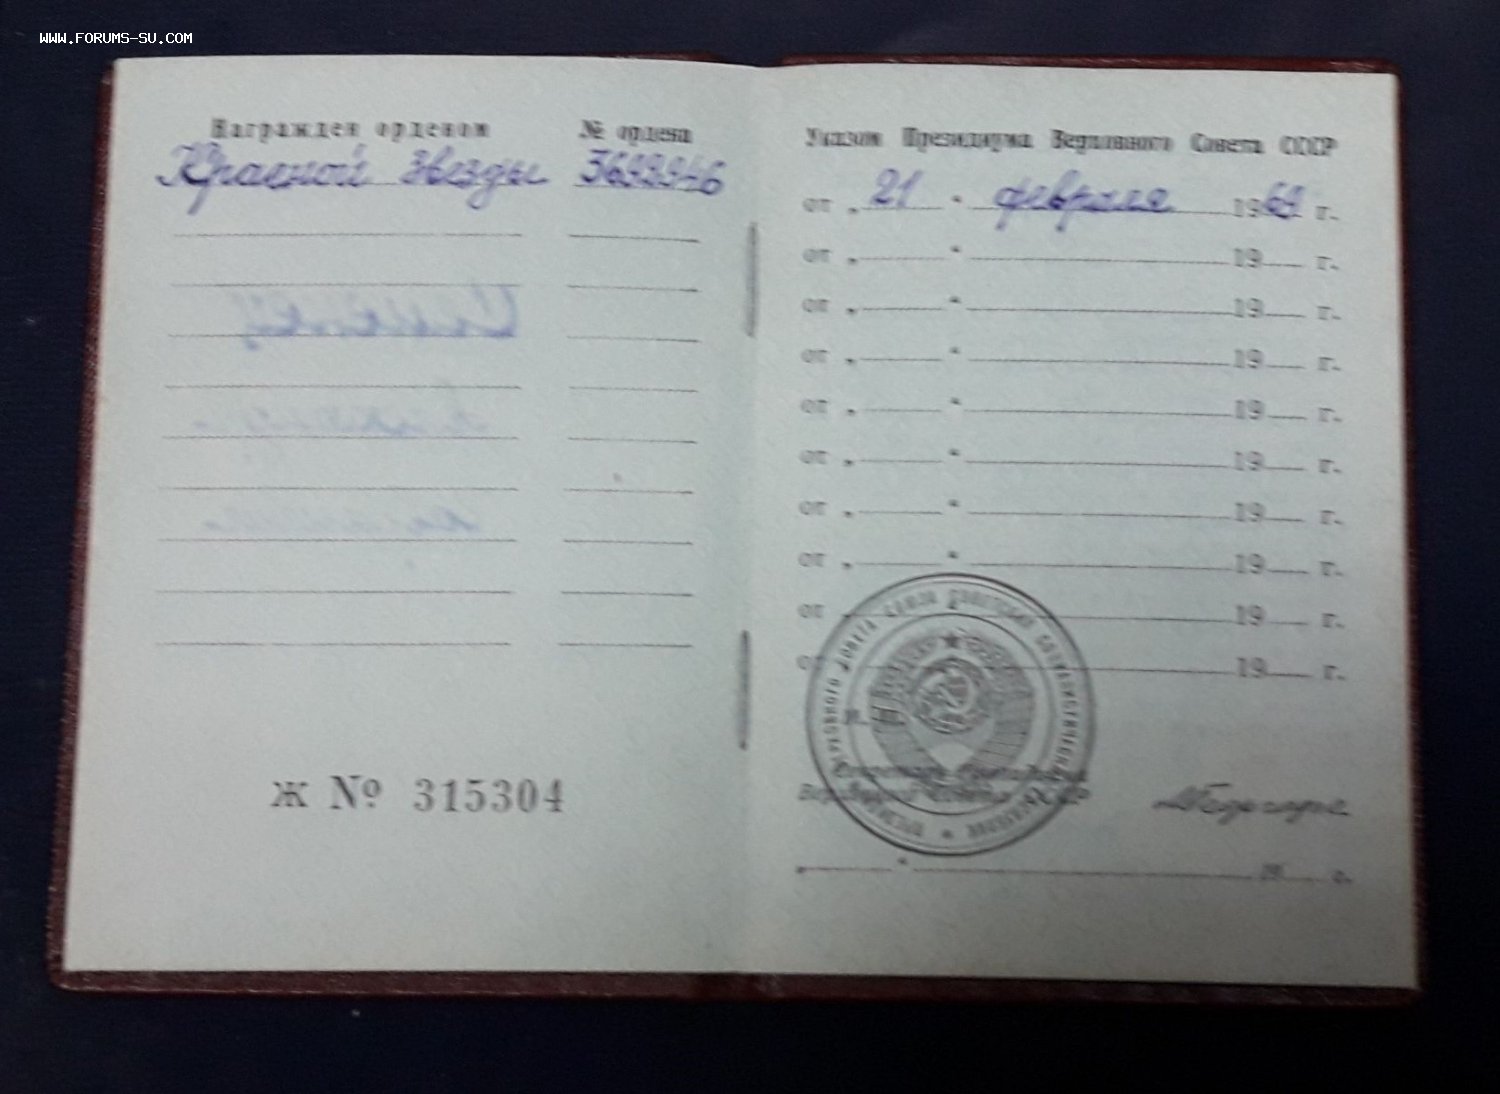 WWW.FORUMS-SU.COM
Награжден орденом № ордена
Красной Звезды 3693946
Ж № 315304
Указом Президиума Верховного Совета СССР
от „ 21 “ февраля 1969 г.
от „ “ 19 г.
от „ “ 19 г.
от „ “ 19 г.
от „ “ 19 г.
от „ “ 19 г.
от „ “ 19 г.
от „ “ 19 г.
от „ “ 19 г.
от „ “ 19 г.
М.
Секретарь Президиума
Верховного Совета СССР
„ “ 19 г.